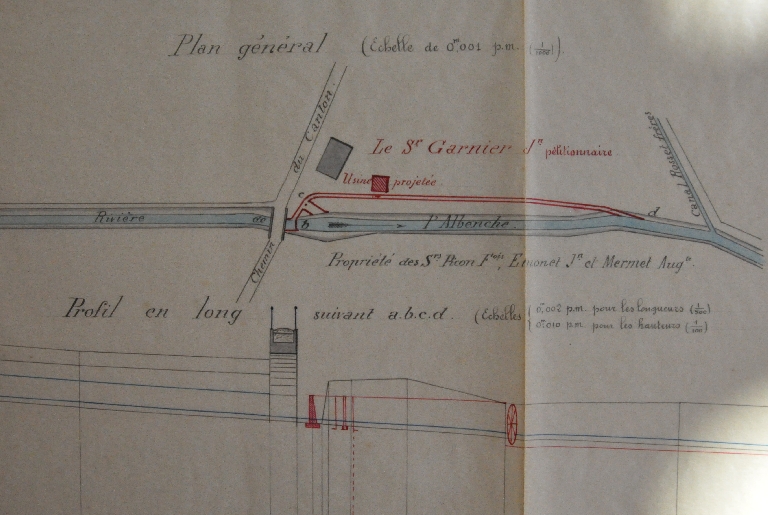 Plan général (Echelle de 0ᵐ,001 p.m. (1/1000)).
Chemin du Canton
Le Sʳ Garnier Jⁿ pétitionnaire
Usine projetée
Canal Rouet frères
c
d
Rivière
de
b
l'Albenche
Propriété des Sʳˢ Picon Fᵒⁱˢ, Emonet Jⁿ et Mermet Augᵉ.
Profil en long suivant a.b.c.d. (Echelles
0ᵐ,002 p.m. pour les longueurs (1/500)
0ᵐ,010 p.m. pour les hauteurs (1/100)